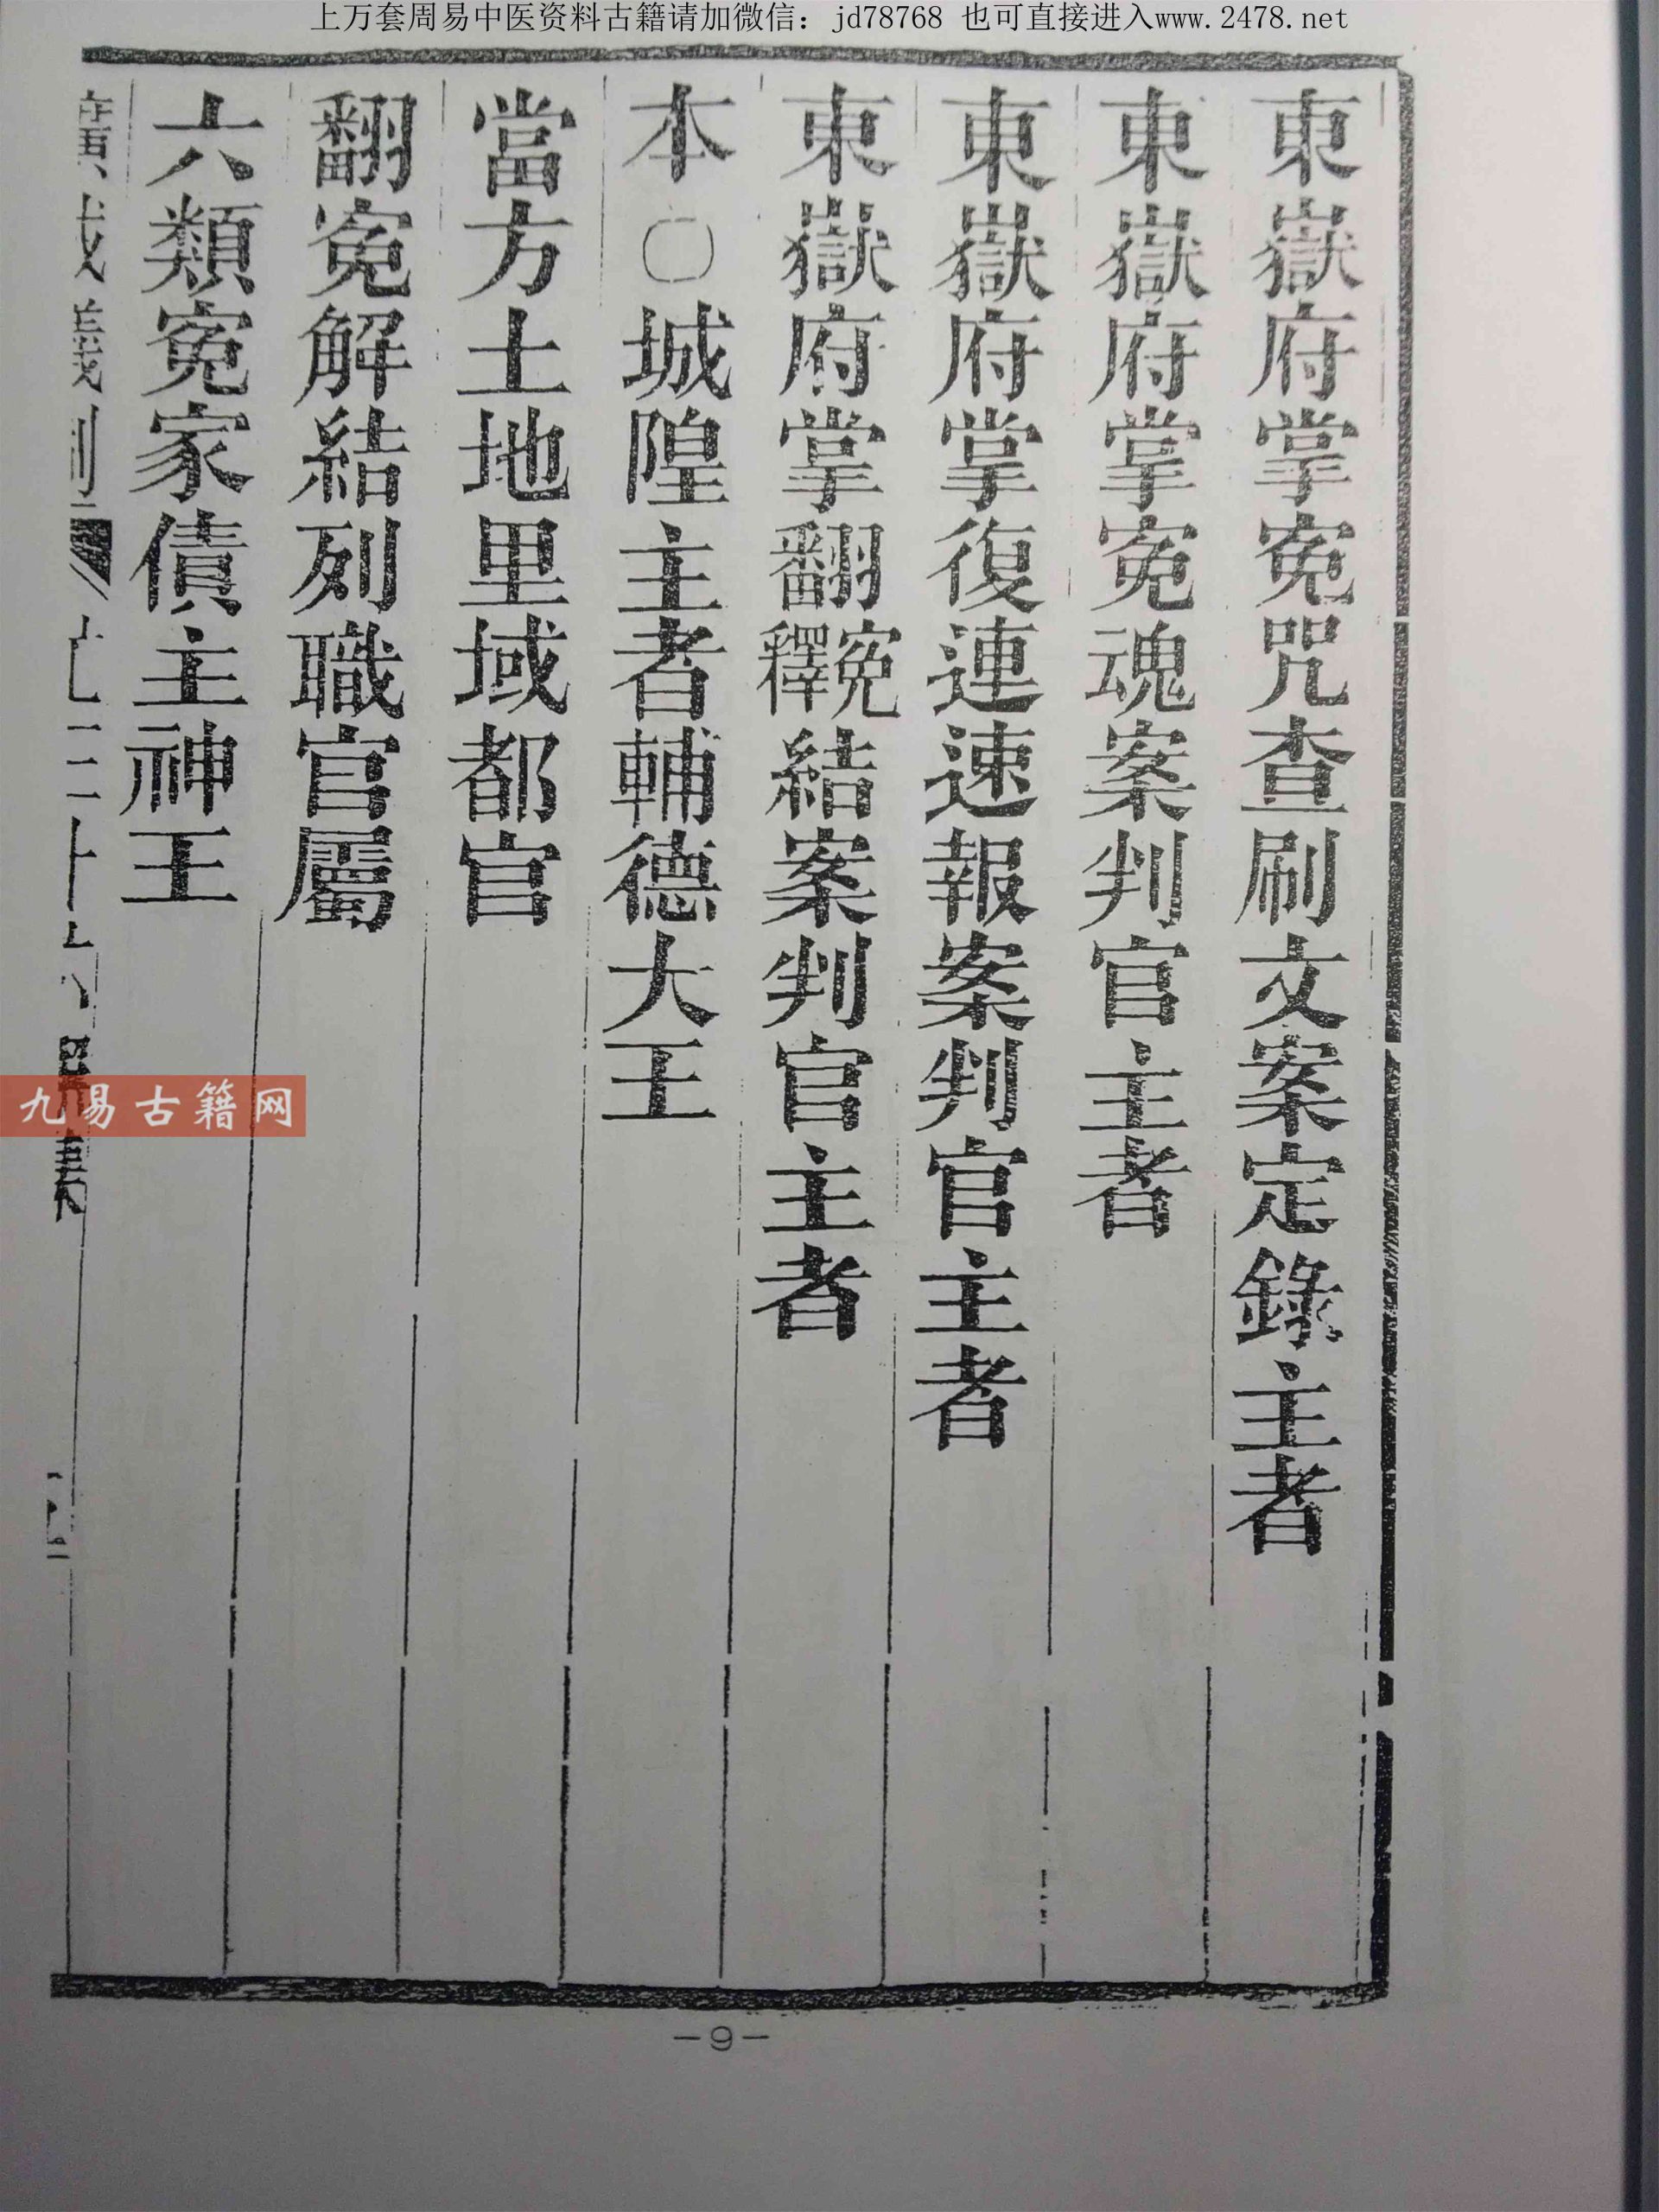 上万套周易中医资料古籍请加微信：jd78768 也可直接进入www.2478.net
東嶽府掌寃咒查刷文案定錄主者
東嶽府掌寃魂案判官主者
東嶽府掌復連速報案判官主者
東嶽府掌翻寃釋結案判官主者
本〇城隍主者輔德大王
當方土地里域都官
翻寃解結列職官屬
六類寃家債主神王
九易古籍网
-9-